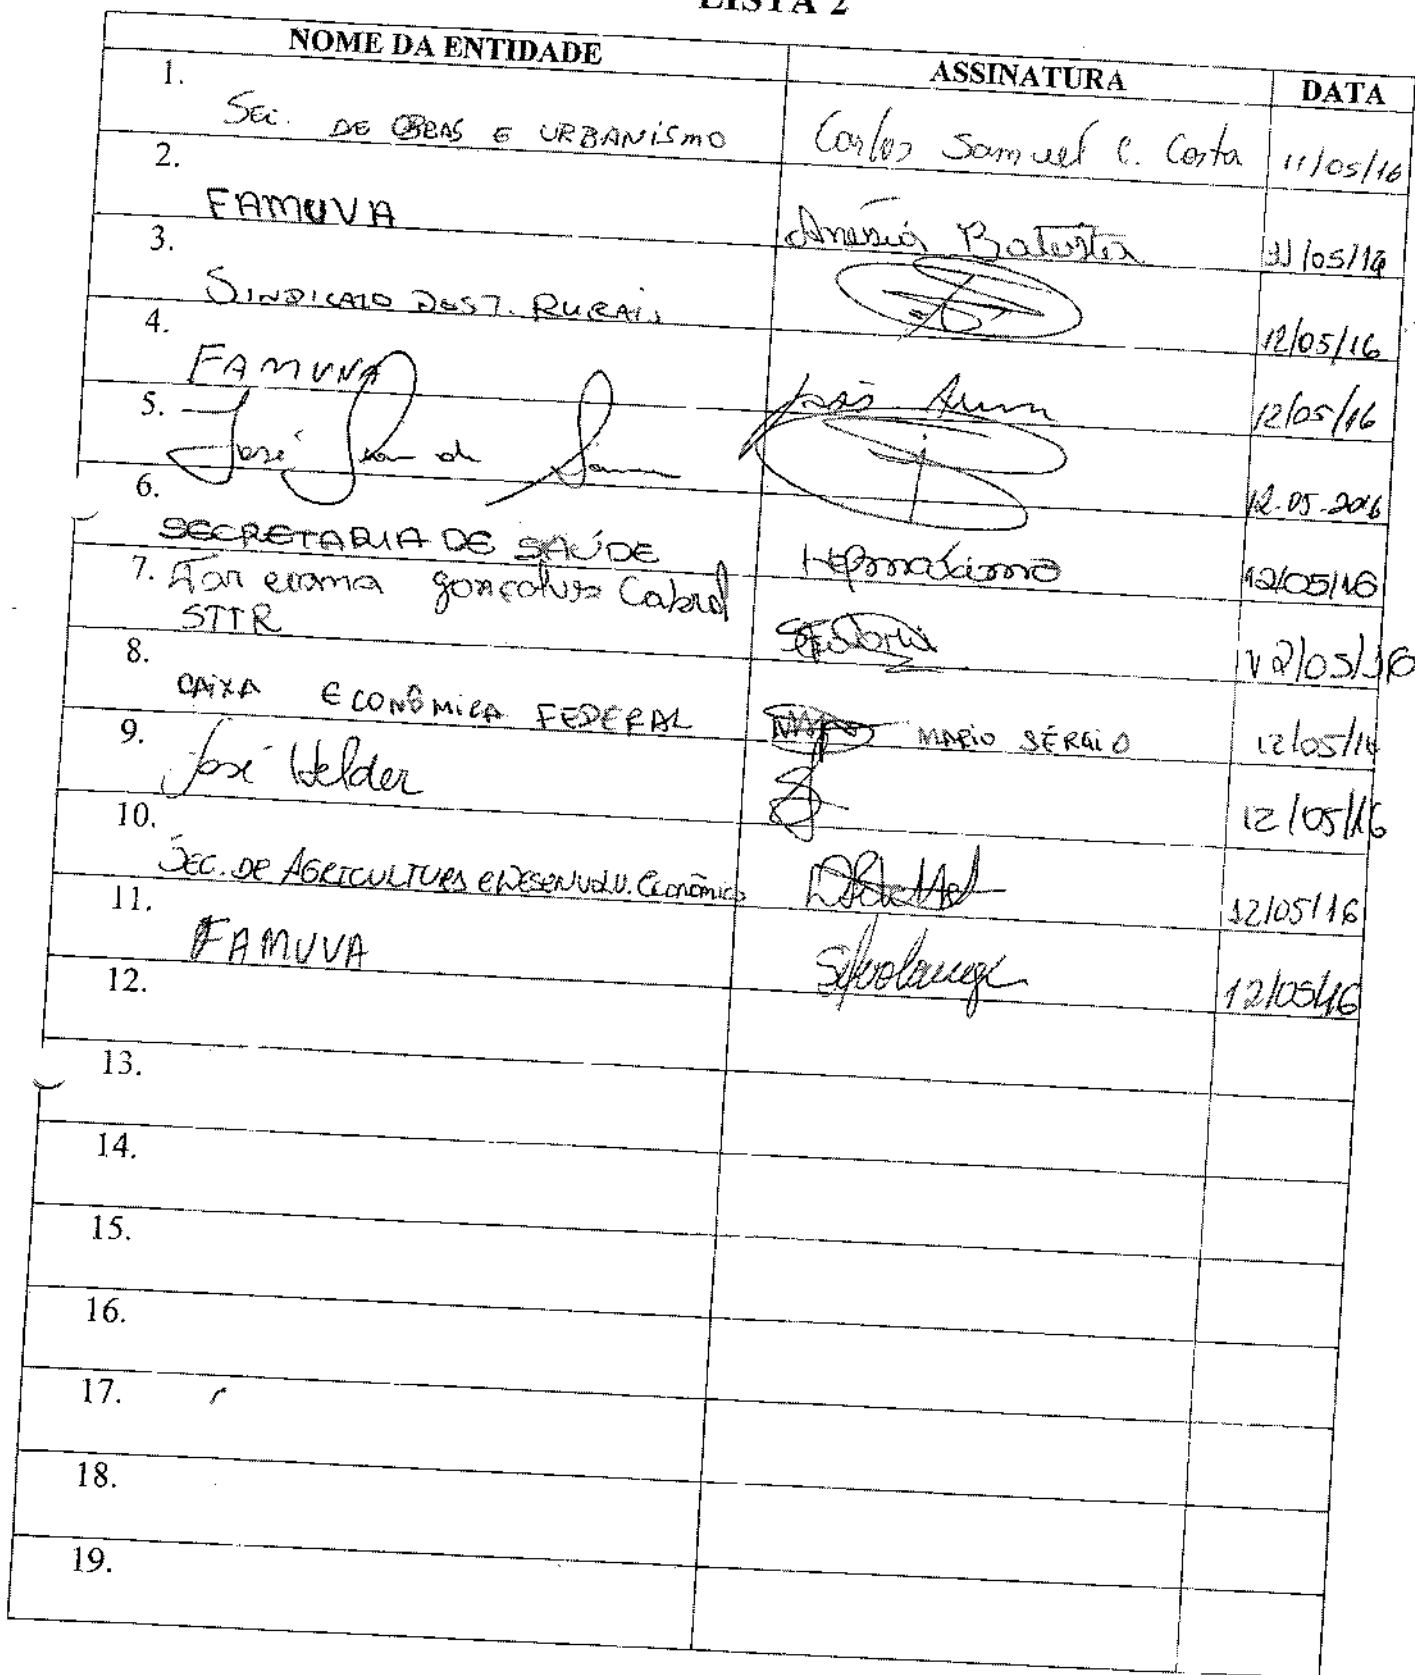 LISTA 2
NOME DA ENTIDADE ASSINATURA DATA
1. Sec. DE OBRAS E URBANISMO Carlos Samuel C. Costa 11/05/16
2. FAMUVA Batista
3. SINDICATO DOS T. RURAIS 12/05/16
4. FAMUVA 12/05/16
5. José de 12.05.2016
6. SECRETARIA DE SAÚDE 12/05/16
7. gonçalves Cabral
STTR 12/05/16
8. CAIXA ECONÔMICA FEDERAL MARIO SÉRGIO 12/05/16
9. José Helder 12/05/16
10. SEC. DE AGRICULTURA e DESENVOLV. Econômico 12/05/16
11. FAMUVA 12/05/16
12.
13.
14.
15.
16.
17.
18.
19.